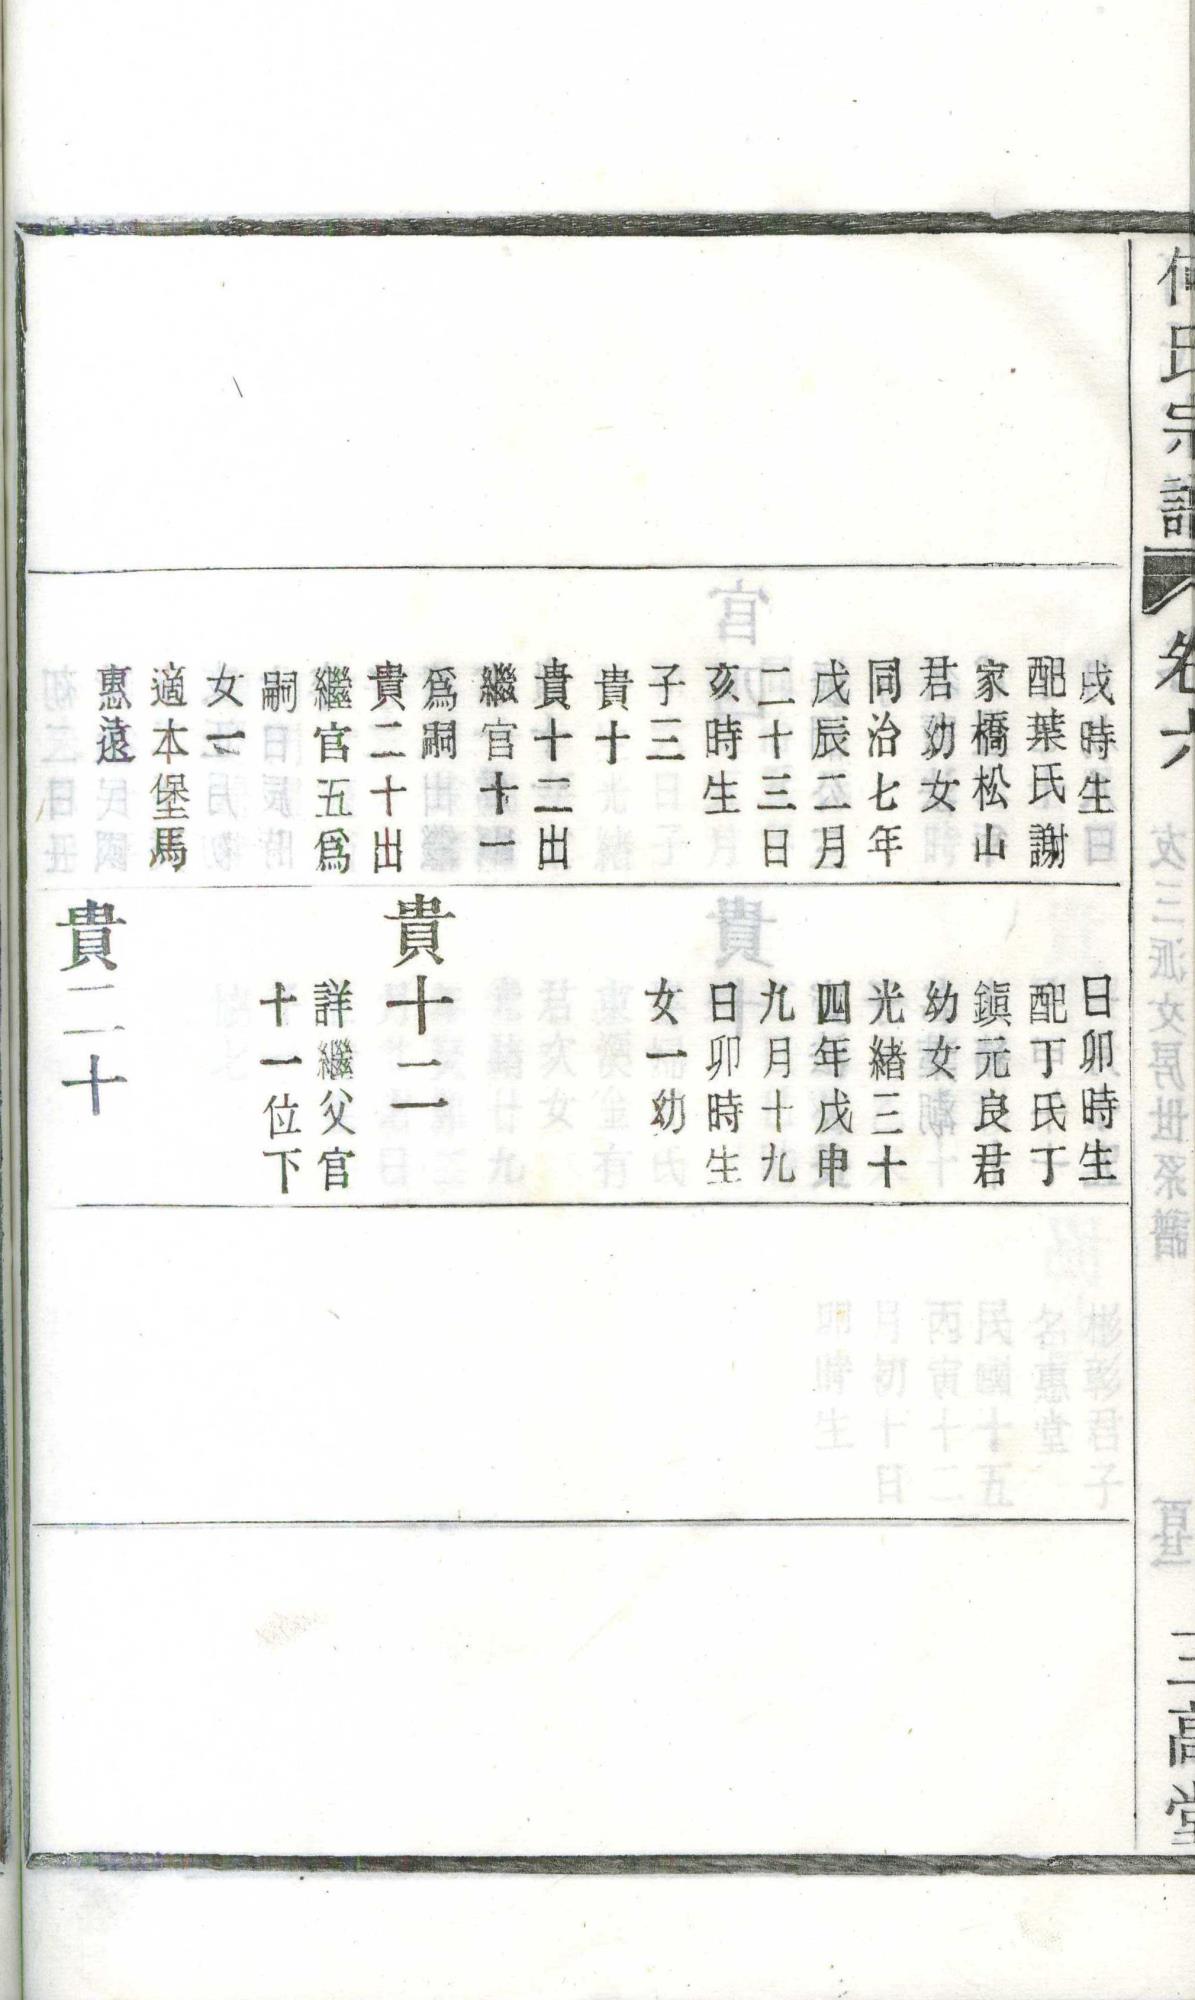 何氏宗譜
卷六
三高堂
戌時生
配葉氏謝
家橋松山
君幼女
同治七年
戊辰二月
二十三日
亥時生
子三
貴十
貴十二出
繼官十一
爲嗣
貴二十出
繼官五爲
嗣
女一
適本堡馬
惠遠
日卯時生
配丁氏丁
鎮元良君
幼女
光緒三十
四年戊申
九月十九
日卯時生
女一幼
貴十二
詳繼父官
十一位下
貴二十